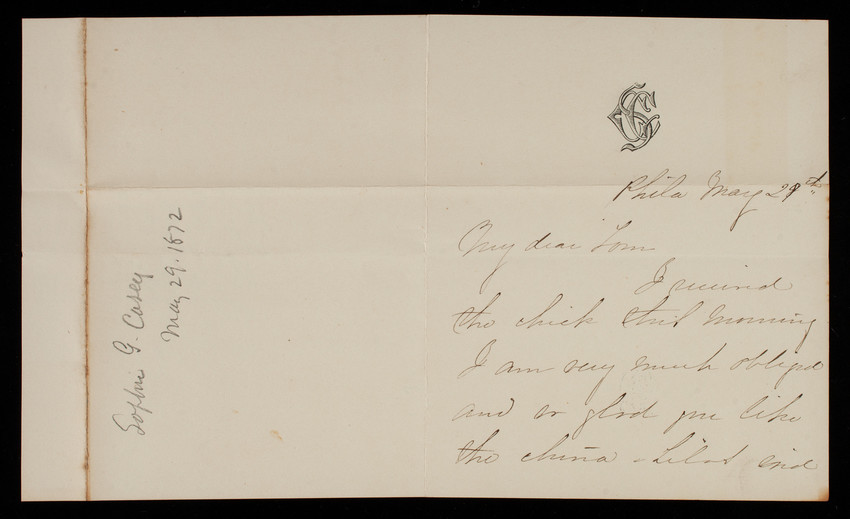 Sophie G. Casey
May 29. 1872
Phila May 29th
My dear Tom
I received
the check this morning
I am very much obliged
and so glad you like
the china - and